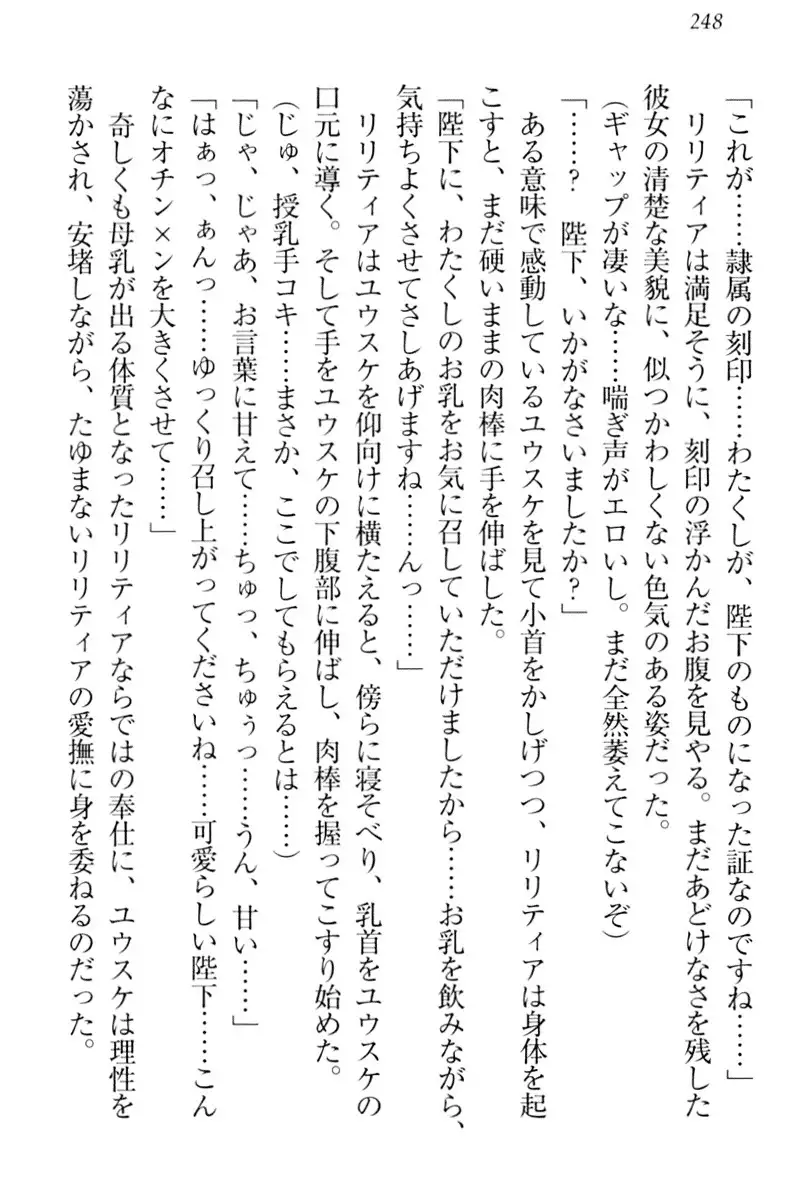 248
「これが……隷属の刻印……わたくしが、陛下のものになった証なのですね……」
リリティアは満足そうに、刻印の浮かんだお腹を見やる。まだあどけなさを残した
彼女の清楚な美貌に、似つかわしくない色気のある姿だった。
(ギャップが凄いな……喘ぎ声がエロいし。まだ全然萎えてこないぞ)
「……? 陛下、いかがなさいましたか?」
ある意味で感動しているユウスケを見て小首をかしげつつ、リリティアは身体を起
こすと、まだ硬いままの肉棒に手を伸ばした。
「陛下に、わたくしのお乳をお気に召していただけましたから……お乳を飲みながら、
気持ちよくさせてさしあげますね……んっ……」
リリティアはユウスケを仰向けに横たえると、傍らに寝そべり、乳首をユウスケの
口元に導く。そして手をユウスケの下腹部に伸ばし、肉棒を握ってこすり始めた。
(じゅ、授乳手コキ……まさか、ここでしてもらえるとは……)
「じゃ、じゃあ、お言葉に甘えて……ちゅっ、ちゅぅっ……うん、甘い……」
「はぁっ、ぁんっ……ゆっくり召し上がってくださいね……可愛らしい陛下……こん
なにオチン×ンを大きくさせて……」
奇しくも母乳が出る体質となったリリティアならではの奉仕に、ユウスケは理性を
蕩かされ、安堵しながら、たゆまないリリティアの愛撫に身を委ねるのだった。